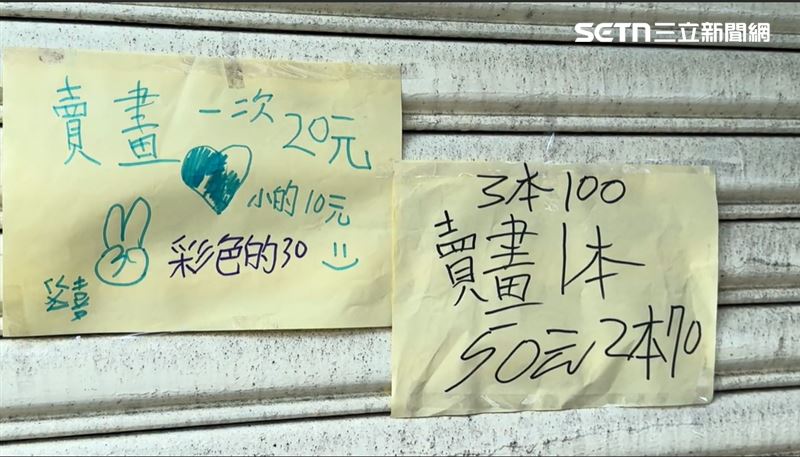 SETN三立新聞網
賣畫一次20元
小的10元
彩色的30
3本100
賣畫1本
50元2本70